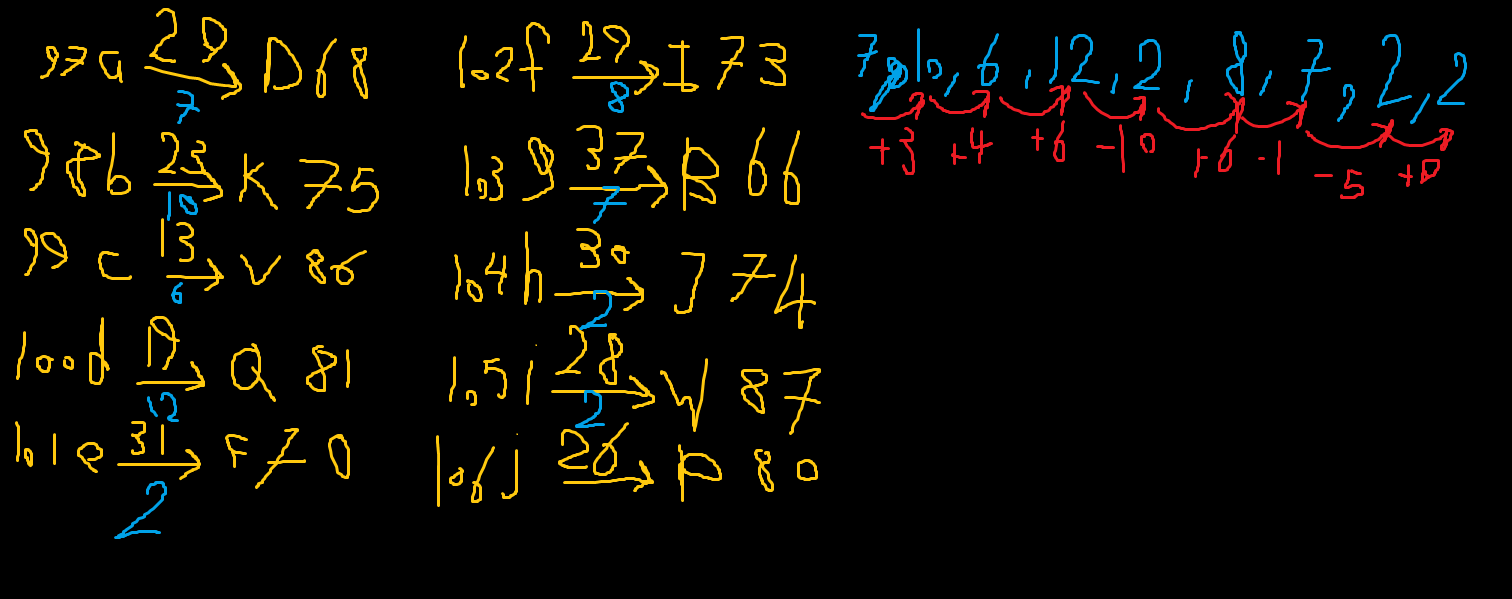 97a 29 → D 68
7
98b 23 → K 75
10
99 c 13 → V 86
6
100d 19 → Q 81
12
101e 31 → F 70
2
102f 29 → I 73
8
103 g 37 → B 66
7
104h 30 → J 74
2
105i 28 → W 87
2
106j 26 → P 80
7, 10, 6, 12, 2, 8, 7, 2, 2
+3 +4 +6 -10 +6 -1 -5 +0